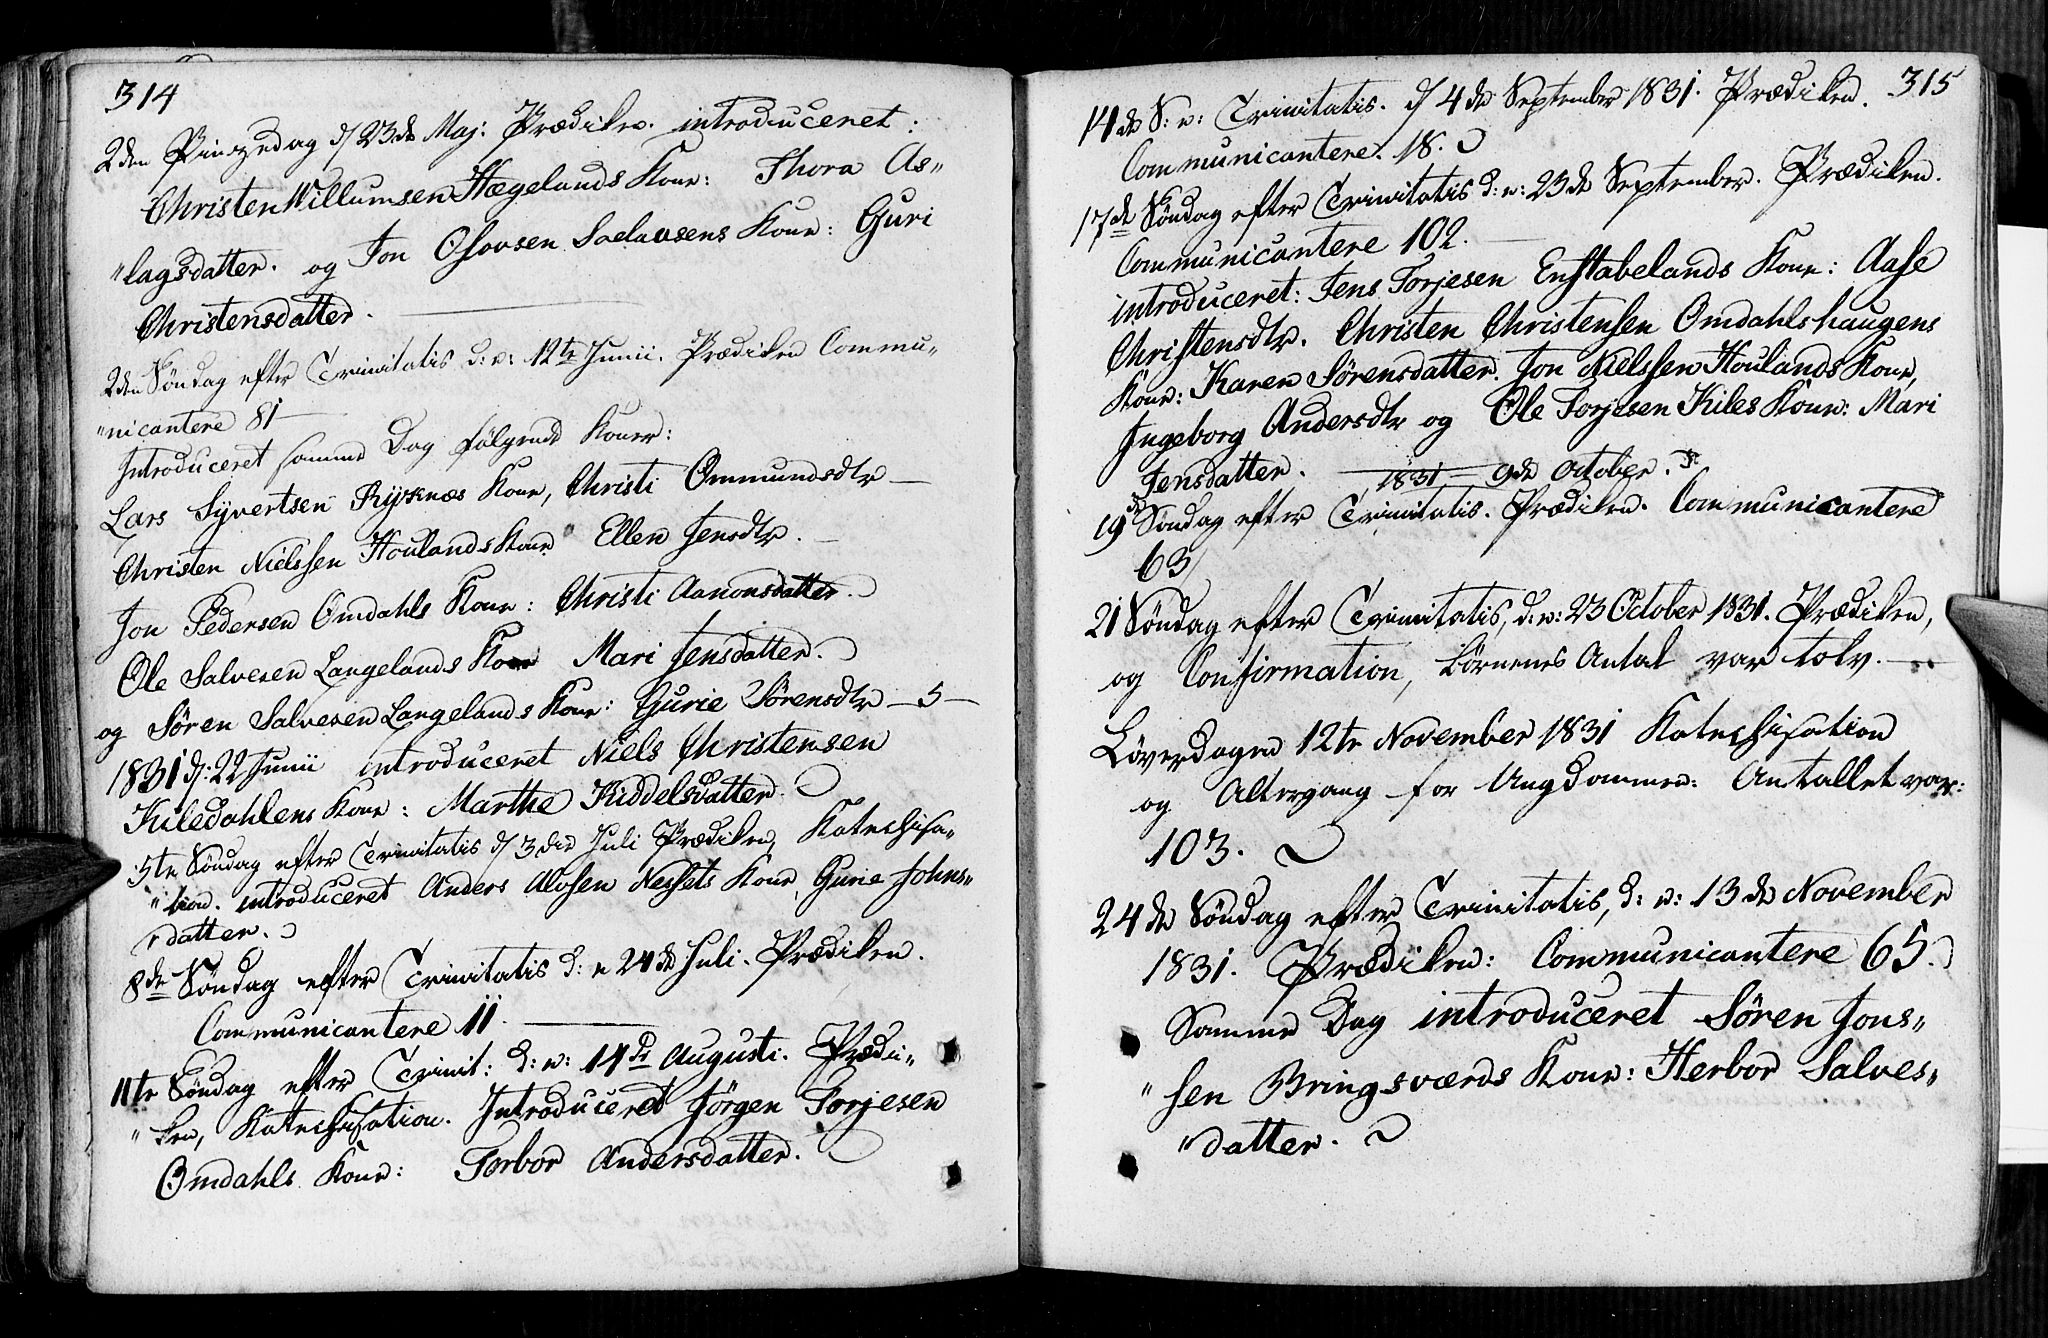 314
2den Pinzedag d/ 23de Maj: Prædiken. introduceret:
Christen Willumsen Hægelands Kone: Thora As„
„lagsdatter. og Jon Olsen Kone: Guri
Christensdatter.
2den Søndag efter Trinitatis d: e: 12te Junii. Prædiken Commu„
„nicantere 81
Introduceret samme Dag følgende Koner:
Lars Syvertsen Kone, Christi Ommundsdtr
Christen Nielssen Houlands Kone Ellen Jensdtr.
Jon Pedersen Omdahls Kone: Christi Aanonsdatter.
Ole Salvesen Langelands Kone Mari Jensdatter.
og Søren Salvesen Langelands Kone: Gurie Sörensdtr – 5 –
1831 d: 22 Junii introduceret Niels Christensen
Kiledahlens Kone: Marthe Kiddelsdatter.
5te Søndag efter Trinitatis d/ 3die Juli Prædiken, Katechisa„
„tion. introduceret Anders Alofsen Nessets Kone, Gurie Johns„
„datter.
8de Søndag efter Trinitatis d: e 24de Juli. Prædiken.
Communicantere 11.
11te Søndag efter Trinit: d: e: 14de Augusti. Prædi„
„ken, Katechisation. Introduceret Jörgen Torjesen
Omdahls Kone: Torbor Andersdatter.
315
14de S: e: Trinitatis. d/ 4de September 1831. Prædiken.
Communicantere. 18.
17de Søndag efter Trinitatis d: e: 23de September. Prædiken.
Communicantere 102.
introduceret: Jens Torjesen Enstabelands Kone: Aase
Christensdtr. Christen Christensen Omdahlshaugens
Kone: Karen Sörensdatter. Jon Nielssen Houlands Kone,
Ingeborg Andersdtr og Ole Torjesen Kiles Kone: Mari
Jensdatter. 1831 – 9de October.
19de Søndag efter Trinitatis. Prædiken. Communicantere
63
21 Søndag efter Trinitatis, d: e: 23 October 1831. Prædiken,
og Confirmation, Børnenes Antal var tolv.
Løverdagen 12te November 1831 Katechisation
og Altergang for Ungdommen: Antallet var:
103.
24de Søndag efter Trinitatis, d: e: 13de November
1831. Prædiken: Communicantere 65.
Samme Dag introduceret Søren Jons„
„sen Bringsværds Kone: Herbor Salves„
„datter.